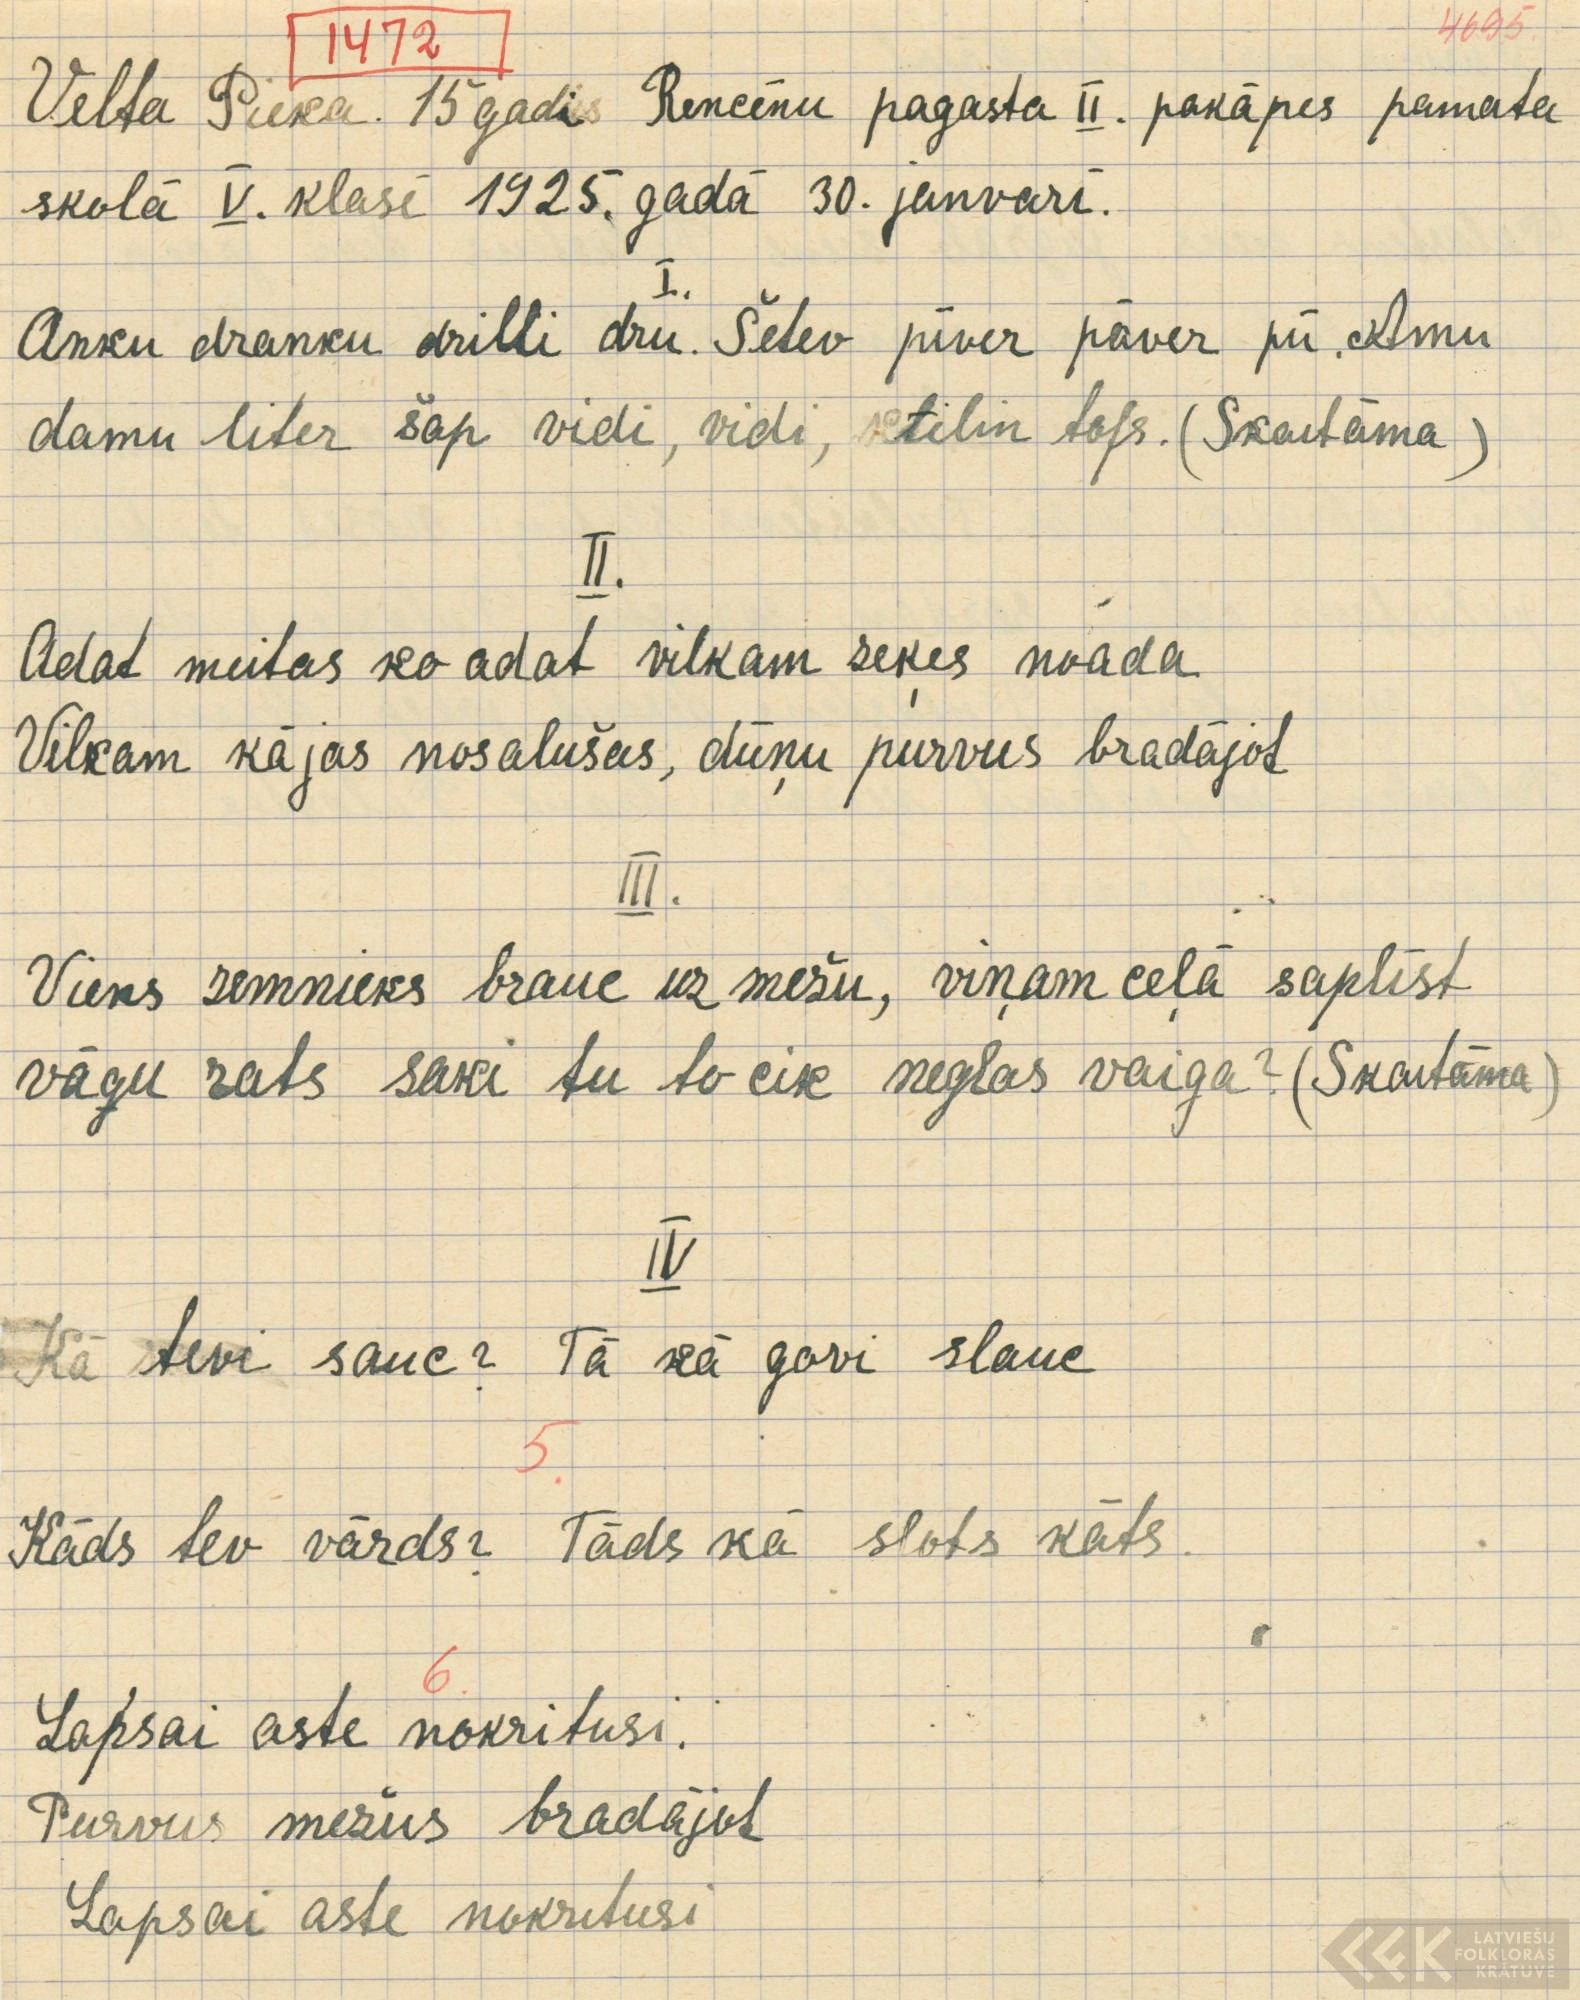 1472
4695.
Velta Pieka. 15 gadus Rencēnu pagasta II. pakāpes pamata
skolā V. klasē 1925. gadā 30. janvarī.
I.
Anku dranku drilli drū. Šetev pīver pāver pū. Amu
damu liter šap vidi, vidi, tilin tofs. (Skaitāma)
II.
Adat meitas ko adat vilkam zeķes noada
Vilkam kājas nosalušas, dūņu purvus bradājot
III.
Viens zemnieks brauc uz mežu, viņam ceļā saplīst
vāgu rats saki tu to cik neglas vaiga? (Skaitāma)
IV
Kā tevi sauc? Tā kā govi slauc
5.
Kāds tev vārds? Tāds kā slots kāts.
6.
Lapsai aste nokritusi.
Purvus mežus bradājot
Lapsai aste nokritusi
LATVIEŠU
FOLKLORAS
KRĀTUVE